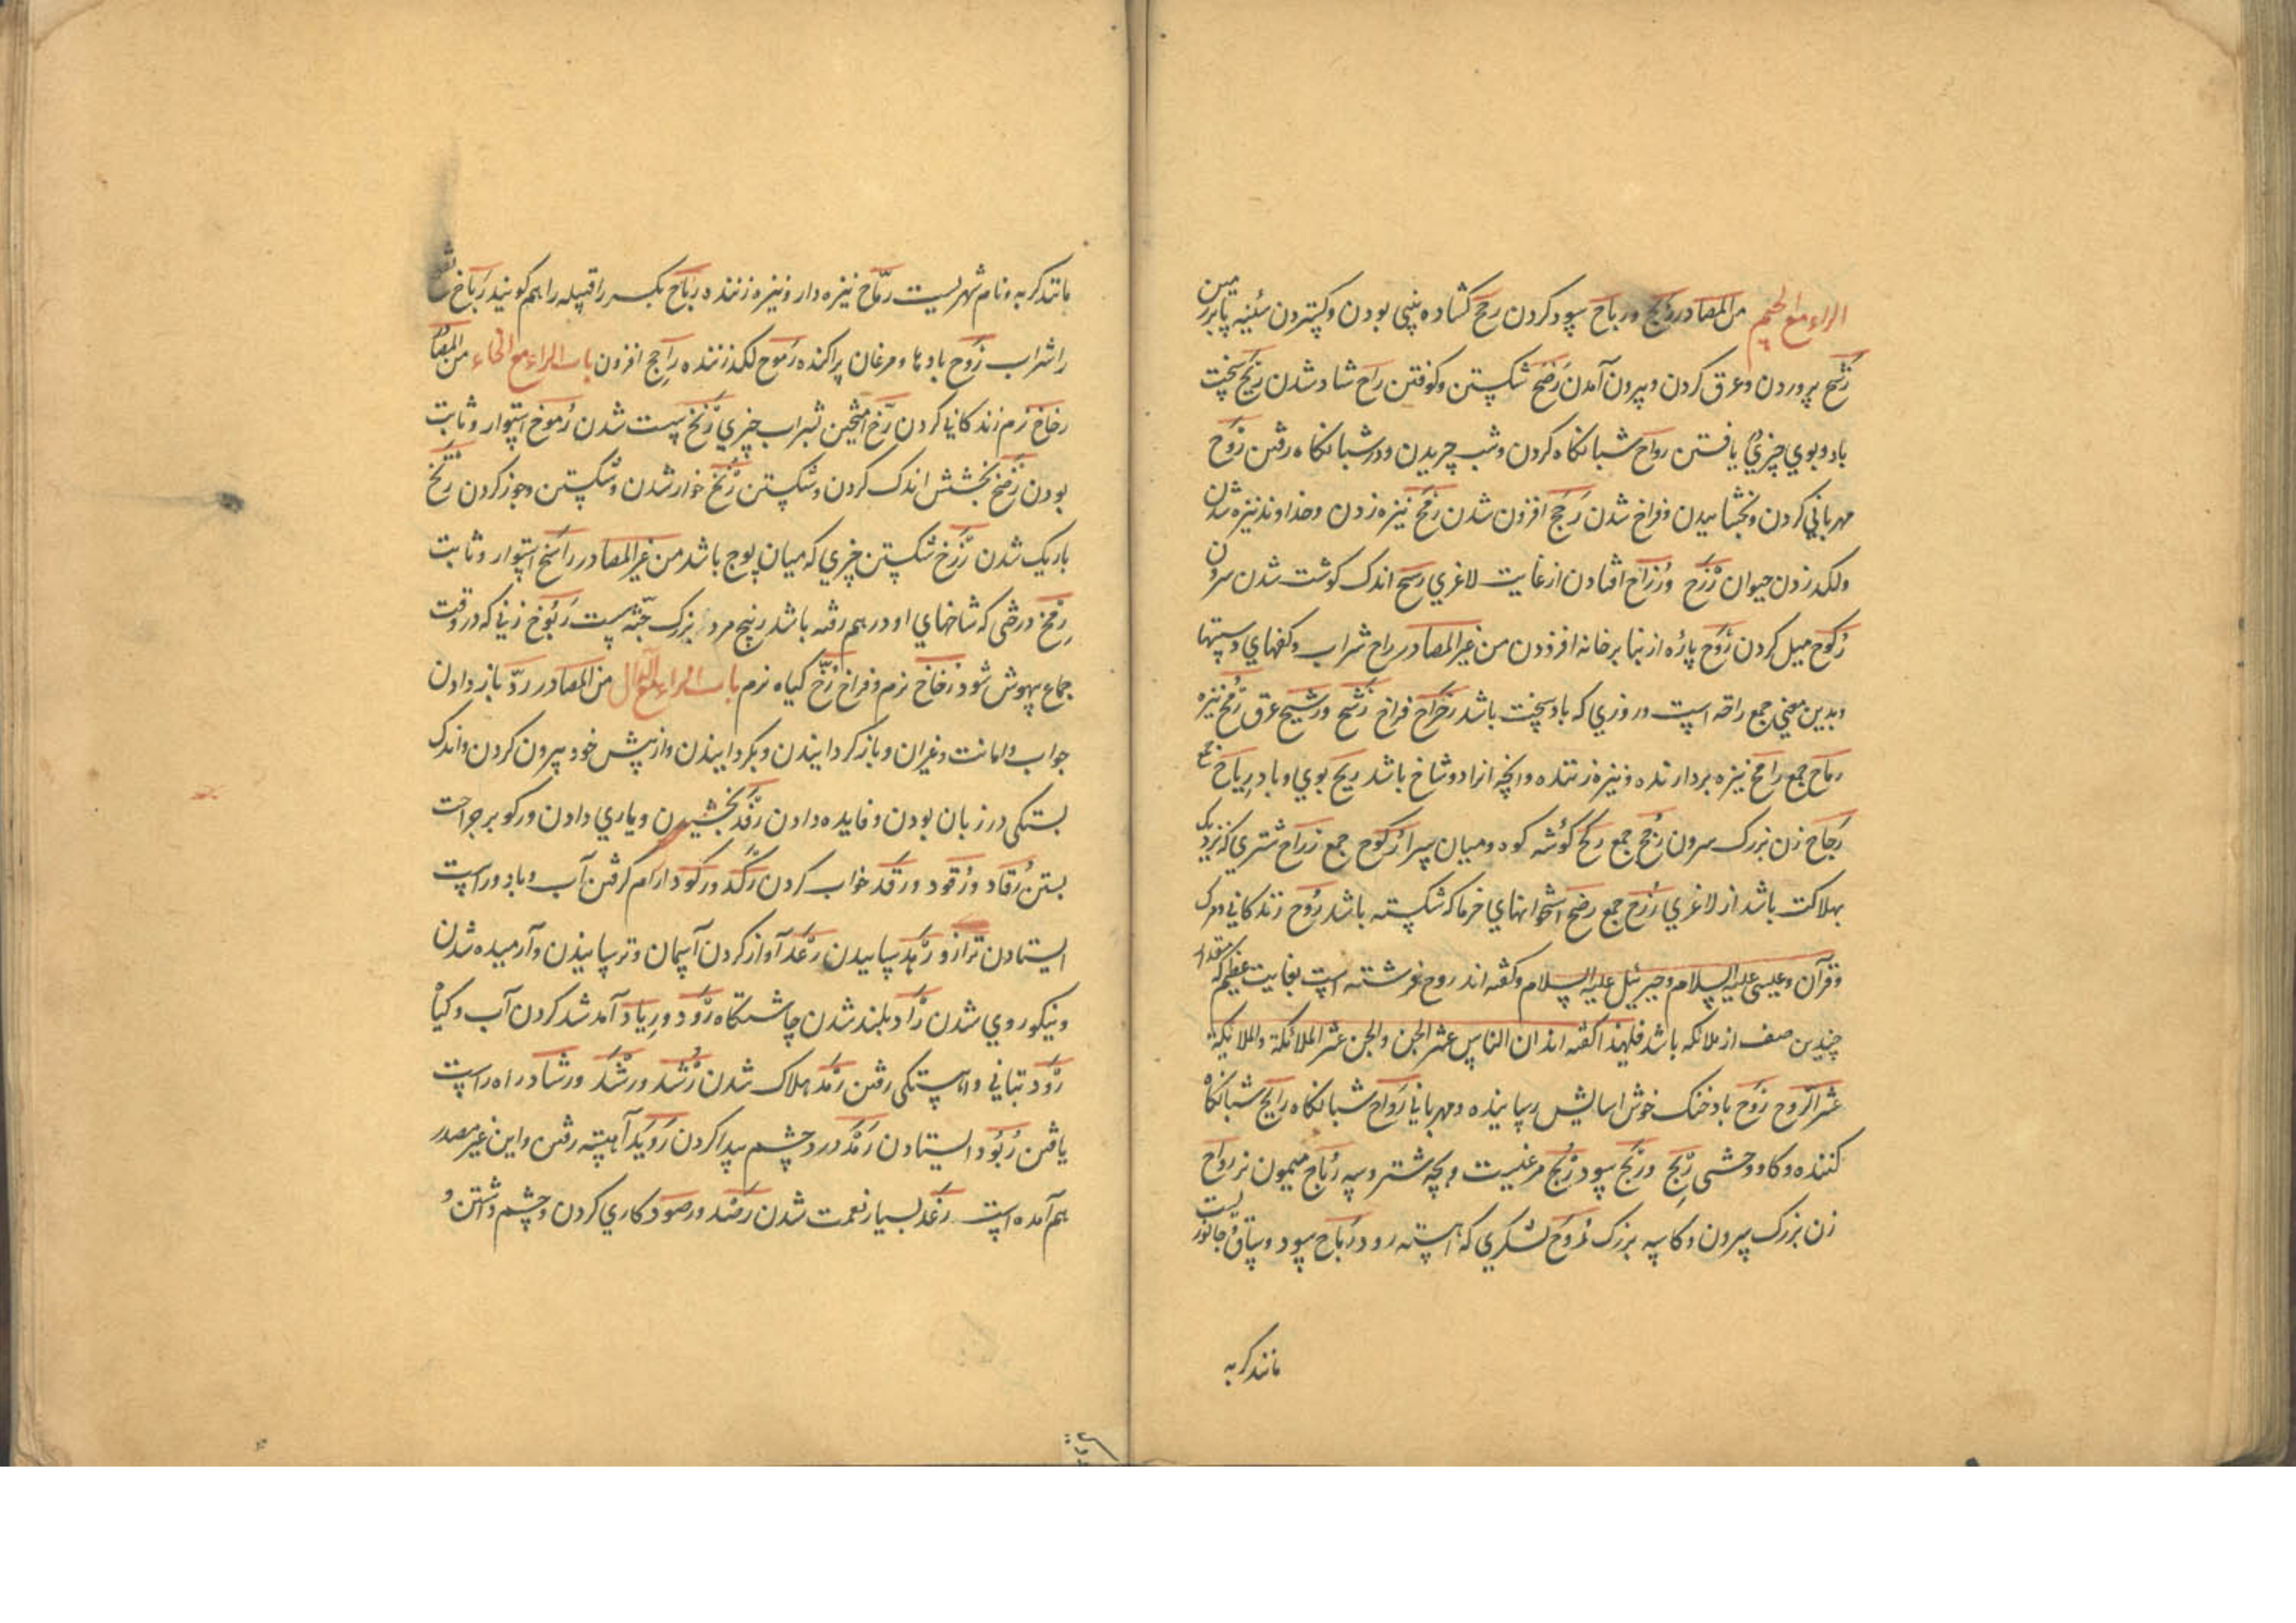 الراء مع الحیم من المصادر ربح و رباح سود کردن رحح کشاده پنبی بودن و کپتردن سئینه پا بر زمین
رشح پروردن و عرق کردن و بیرون آمدن رضح شکستن و کوفتن راح شاد شدن ریح سخت
باد و بوی چیزی یافتن رواح شبانکاه کردن و شب چریدن و در شبانکاه رفتن روح
مهربانی کردن و بخشاییدن و فراخ شدن رجح افزون شدن رمح نیزه زدن و خداوند نیزه شدن
و لکد زدن حیوان رزح و رزاح افتادن از غایت لاغری رسح اندک کوشت شدن سرون
رکوح میل کردن روح پاره از بنا بر خانه افزودن من غیر المصادر راح شراب و کفهای دستها
و بدین معنی جمع راحه است و روزی که باد سخت باشد رحراح فراخ رشح و رشیح عرق رمح نیزه
رماح جمع رامح نیزه بردارنده و نیزه زننده و انچه ازاد و شاخ باشد ریح بوی و باد ریاح جمع
رجاح زن بزرک سرون رجح جمع رکح کوشه کوه و میان سرا رکوح جمع رزاح شتری که نزدیک
بهلاکت باشد از لاغری رزح جمع رضح استخوانهای خرما که شکسته باشد روح زندکانی و مرک
و قرآن و عیسی علیه السلام و جبرئیل علیه السلام و کفته اند روح فرشته است بغایت عظیم که مقدار
چندین صف از ملائکه باشد فلهذا کفته اند ان الناس عشر الجن و الجن عشر الملائکة و الملائکة
عشر الروح روح باد خنک خوش اسایش رساننده و مهربانی رواح شبانکاه رایح شبانکاه
کننده و کاو وحشی ربح و ربح سود ربح مرغیست و بچه شتر و سپه رباح میمون نر رداح
زن بزرک سرون و کاسه بزرک لشکری که اهسته رود رباح سود و ستاق جانوریست
مانند کربه
مانند کربه و نام شهریست رماح نیزه دار و نیزه زننده رباح بکسر را قبیله را هم کویند رباح
را شراب روح بادها و مرغان پراکنده رموح لکد زننده راجح افزون باب الراء مع الخاء من المصادر
رخاخ نرم زندکانی کردن رخ آمیختن شراب چیزی رنخ سست شدن رسوخ استوار و ثابت
بودن رضخ بخشش اندک کردن و شکستن رنخ خوار شدن و شکستن و جوز کردن رتخ
باریک شدن رزخ شکستن چیزی که میان پوچ باشد من غیر المصادر راسخ استوار و ثابت
رمخ درختی که شاخهای او در هم رفته باشد ربیخ مرد بزرک جثه سست ربوخ زنی که در وقت
جماع بیهوش شود رخاخ نرم و فراخ رخ کیاه نرم باب الراء مع الدال من المصادر رد باز دادن
جواب و امانت و غیر ان و باز کردانیدن و بکردانیدن و از پیش خود بیرون کردن و اندک
بستکی در زبان بودن و فایده دادن رفد بخشیدن و یاری دادن و رکو بر جراحت
بستن رقاد و رقود و رقد خواب کردن رکد و رکود ارام کرفتن آب و باد و راست
ایستادن ترازو رهد ساییدن رعد آواز کردن آسمان و ترسانیدن و آرمیده شدن
و نیکو روی شدن رأد بلند شدن چاشتکاه رود و ریاد آمد شد کردن آب و کیاه
رود تباتی و اهستکی رفتن رمد هلاک شدن رشد و رشد و رشاد راه راست
یافتن ربود ایستادن رمد درد چشم پیدا کردن روید آهسته رفتن و این غیر مصدر
هم آمده است رغد بسیار نعمت شدن رصد و رصود کاری کردن و چشم داشتن و